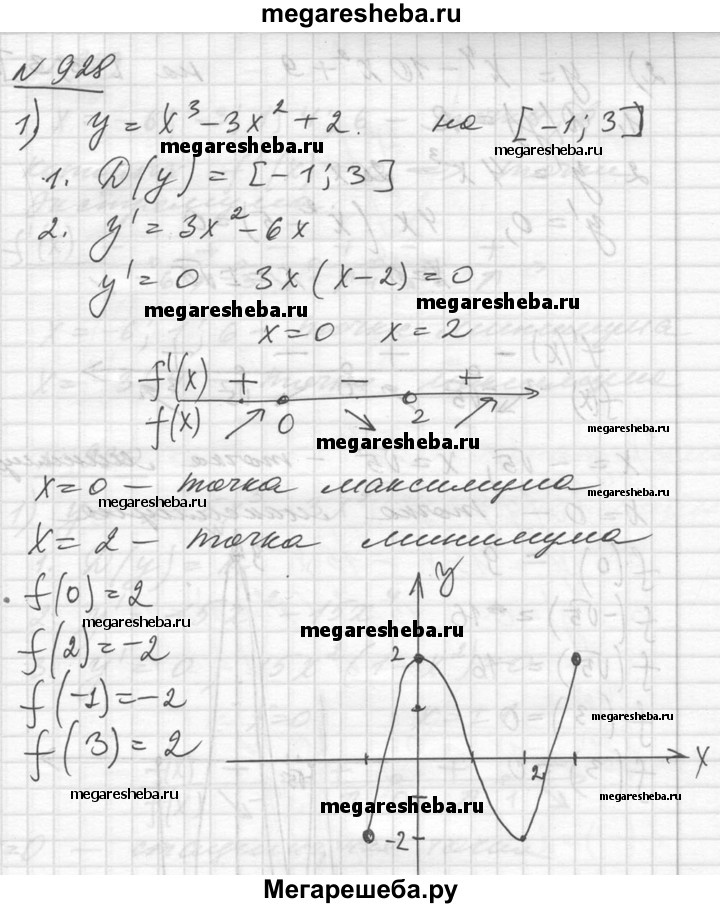 megaresheba.ru
N 928
1) y = x³ - 3x² + 2. на [-1; 3]
megaresheba.ru megaresheba.ru
1. D(y) = [-1; 3]
2. y' = 3x² - 6x
y' = 0 3x(x-2) = 0
megaresheba.ru megaresheba.ru
x=0 x=2
f'(x) + - +
f(x) 0 2
megaresheba.ru megaresheba.ru
x=0 - точка максимума
megaresheba.ru megaresheba.ru
x=2 - точка минимума
y
f(0)=2
megaresheba.ru megaresheba.ru
f(2)=-2
2
f(-1)=-2
megaresheba.ru
f(3)=2
x
2
megaresheba.ru megaresheba.ru megaresheba.ru
-2
Мегарешеба.ру